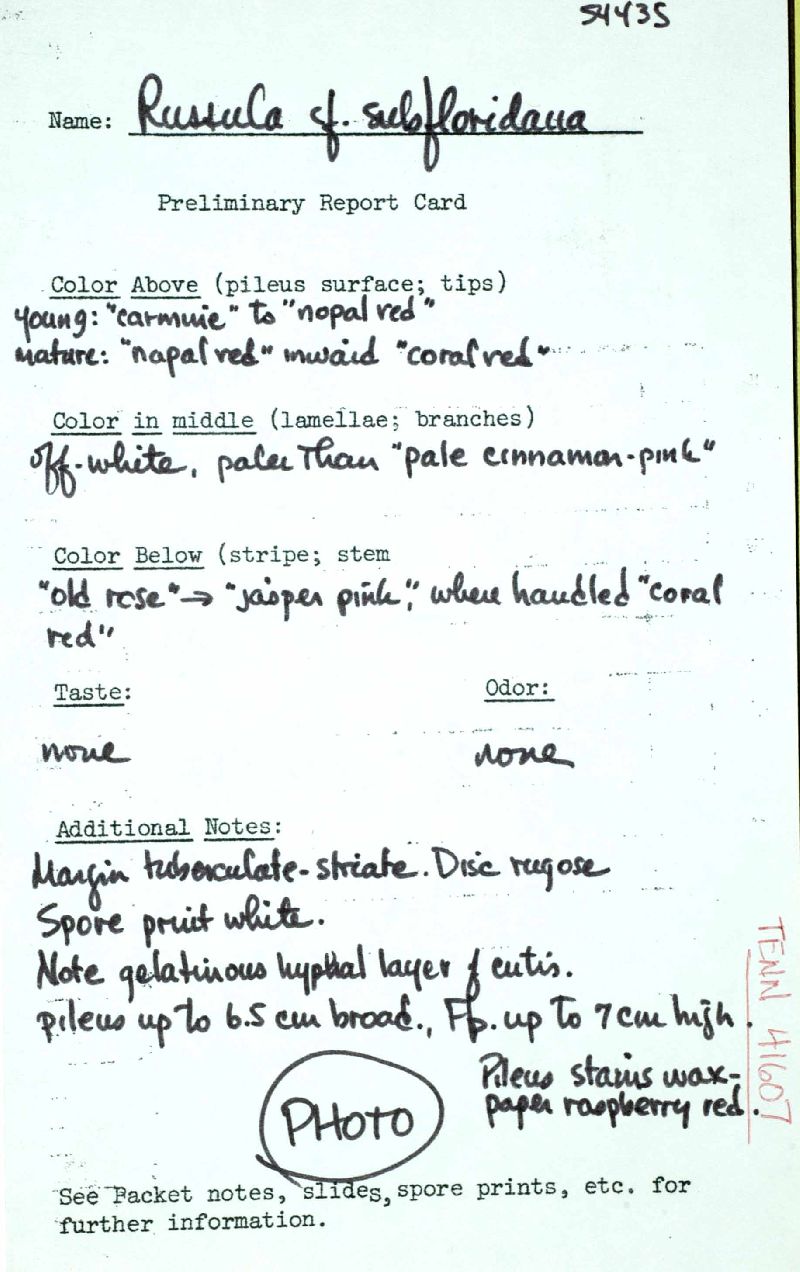 54435
Name: Russula cf. subfloridana
Preliminary Report Card
Color Above (pileus surface; tips)
young: "carmine" to "nopal red"
mature: "napal red" inward "coral red"
Color in middle (lamellae; branches)
off-white, paler than "pale cinnamon-pink"
Color Below (stripe; stem
"old rose" → "jasper pink", when handled "coral
red"
Taste: Odor:
none none
Additional Notes:
Margin tuberculate-striate. Disc rugose
Spore print white.
Note gelatinous hyphal layer of cutis.
pileus up to 6.5 cm broad., Fb. up to 7 cm high.
Pileus stains wax-
paper raspberry red.
PHOTO
See Packet notes, slides, spore prints, etc. for
further information.
TENN 41607